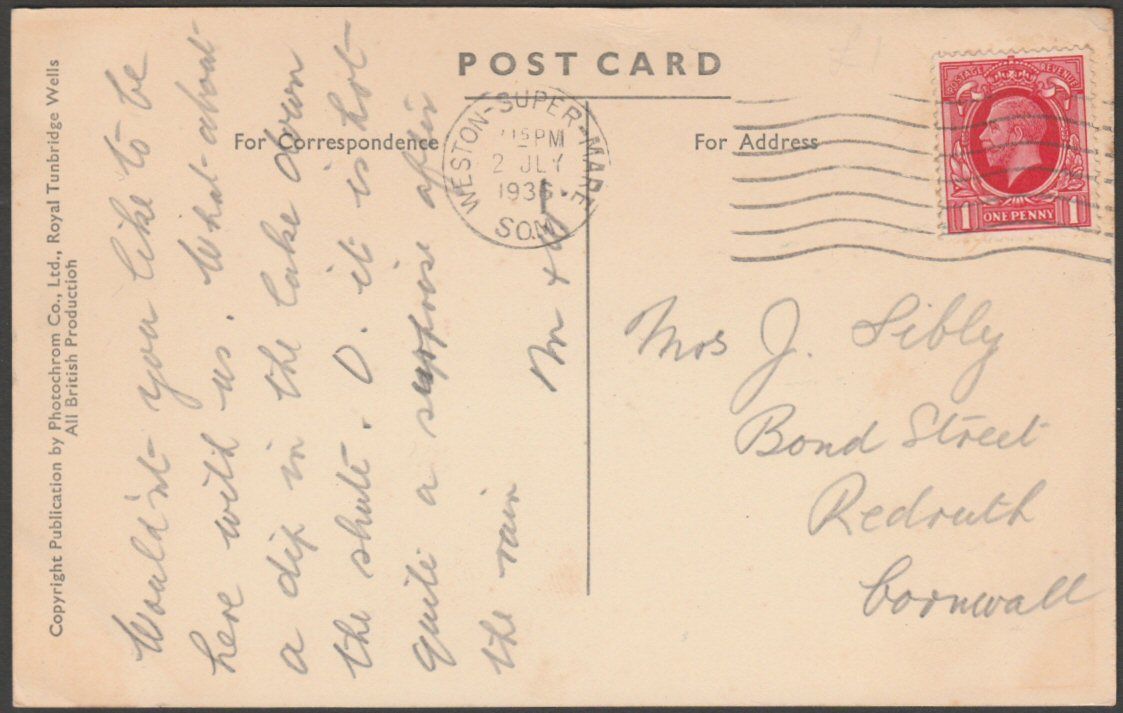 POST CARD
For Correspondence
For Address
Copyright Publication by Photochrom Co., Ltd., Royal Tunbridge Wells
All British Production
Would'nt you like to be
here with us. What about
a dip in the lake down
the shute. O. it is hot
quite a surprise after
the rain
M &
WESTON-SUPER-MARE
15 PM
2 JLY
1936
SOM
POSTAGE REVENUE
1 ONE PENNY 1
£1
Mrs J. Sibly
Bond Street
Redruth
Cornwall